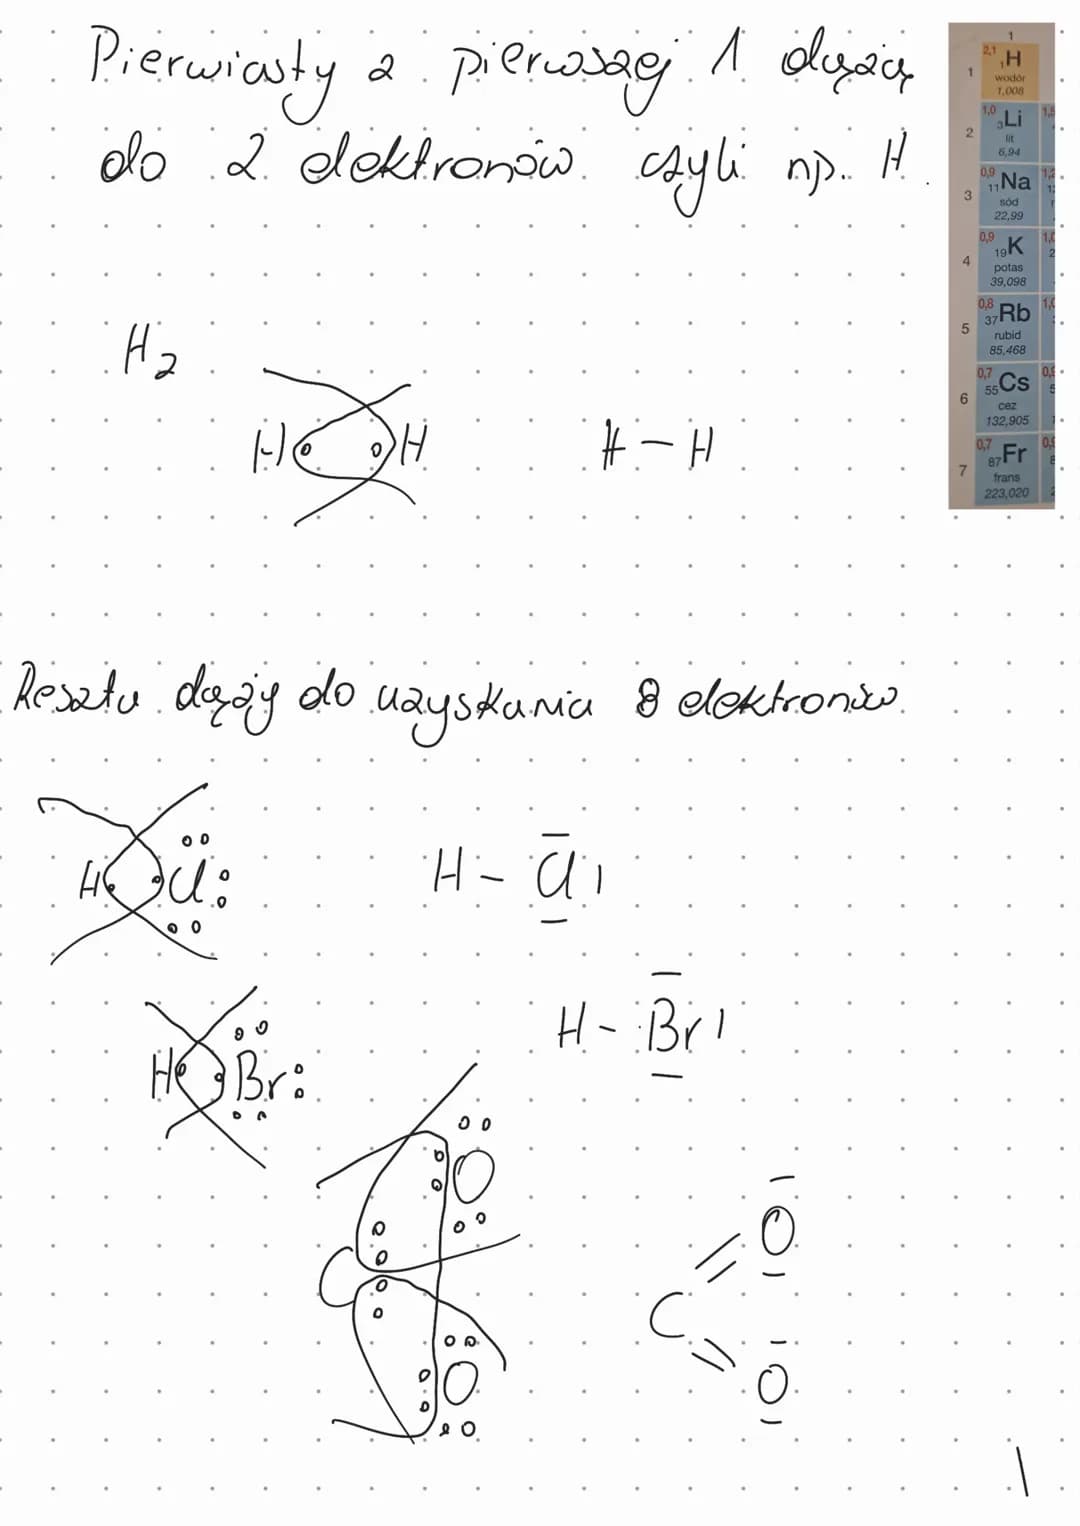 Pierwiasty z pierwszej 1 dążą
do 2 elektronów czyli np. H
1
2,1 1H wodór 1,008
1
1,0 3Li lit 6,94
2
0,9 11Na sód 22,99
3
0,9 19K potas 39,098
4
0,8 37Rb rubid 85,468
5
0,7 55Cs cez 132,905
6
0,7 87Fr frans 223,020
7
H2
H H
H - H
Reszta dąży do uzyskania 8 elektronów
H Cl
H - Cl
H Br
H - Br
O
C
O
O
C
O